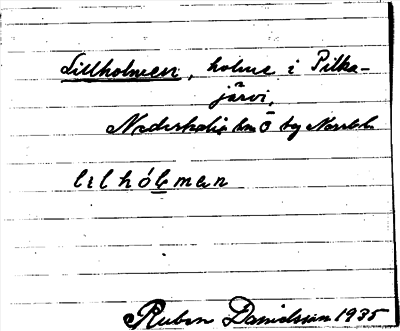 Lillholmen, holme i Pilka-
järvi,
Nederkalix sn Ö by Norrb.
lılhólmen
Ruben Danielsson 1935